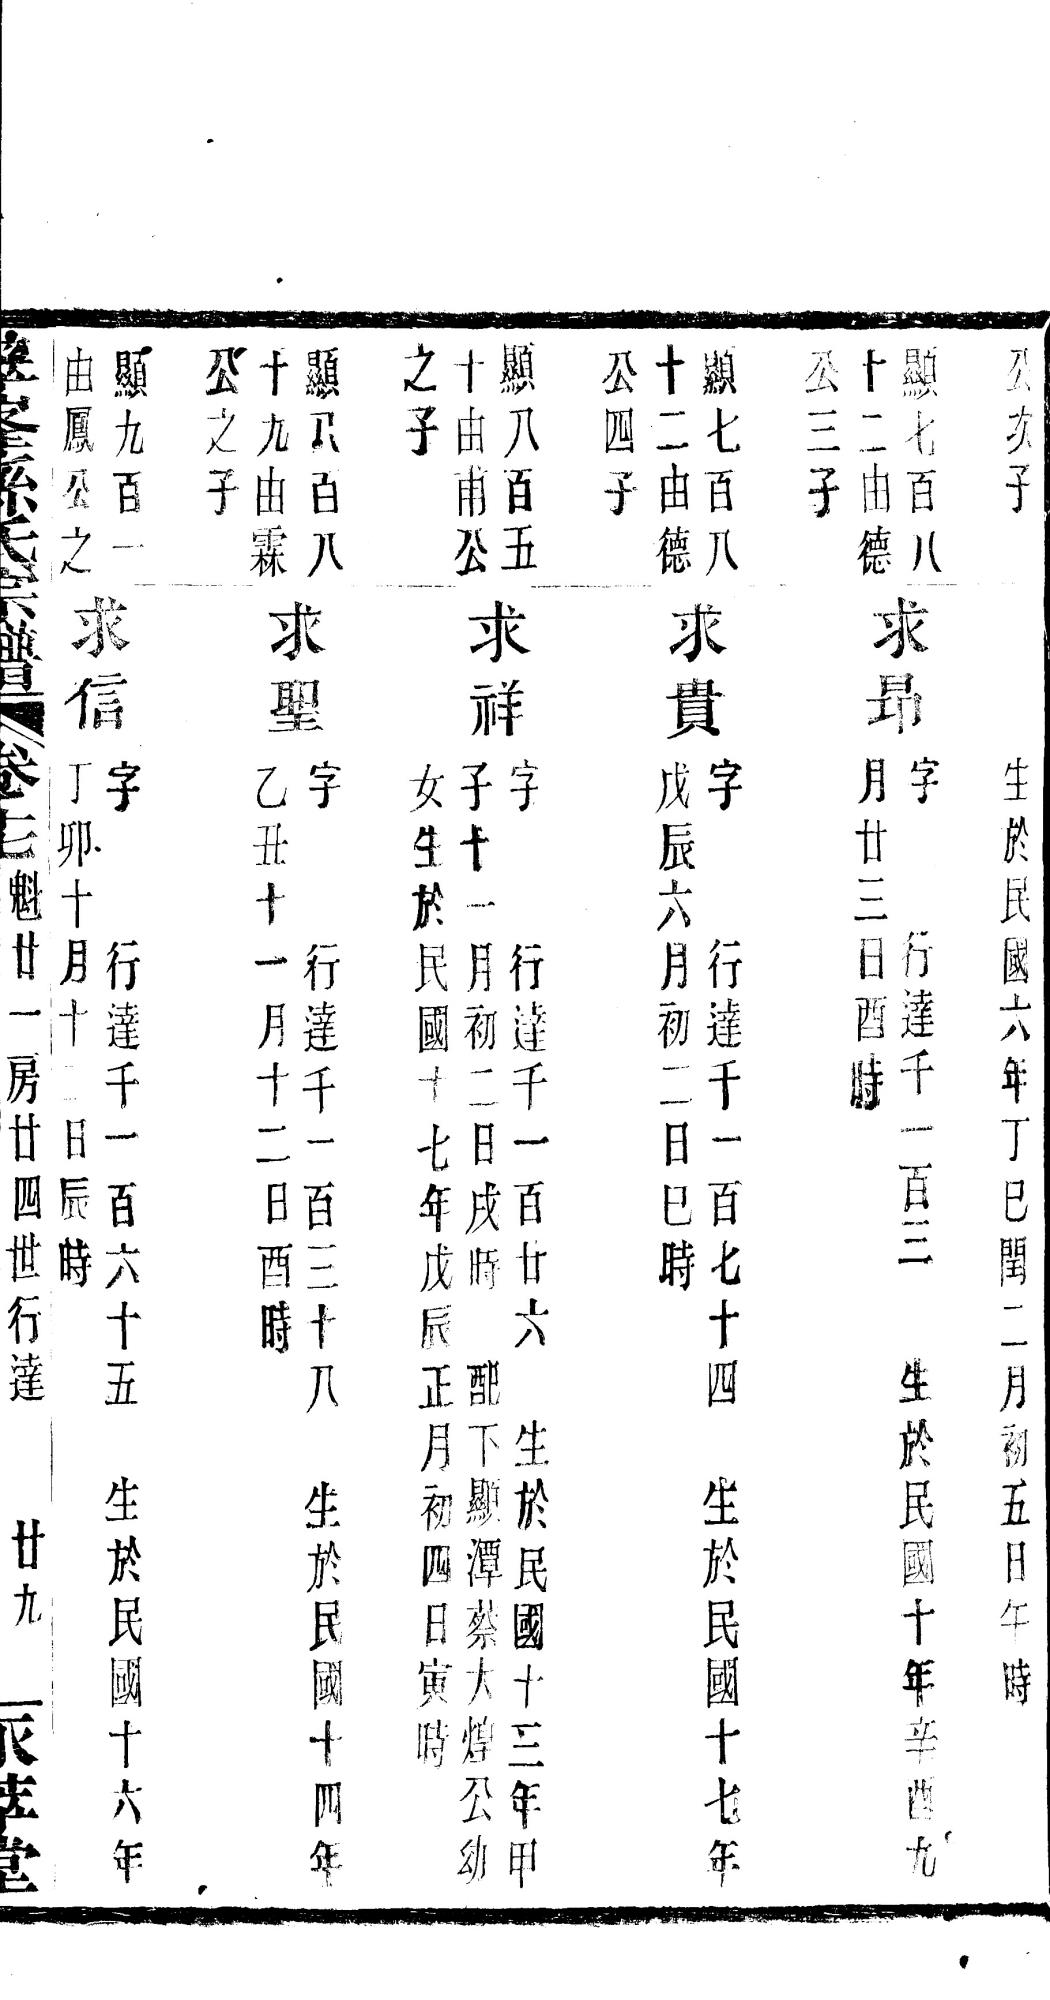 公次子
生於民國六年丁巳閏二月初五日午時
顯七百八
十二由德
公三子
求昂
字　行達千一百三　生於民國十年辛酉九
月廿三日酉時
顯七百八
十二由德
公四子
求貴
字　行達千一百七十四　生於民國十七年
戊辰六月初二日巳時
顯八百五
十由甫公
之子
求祥
字　行達千一百廿六　生於民國十三年甲
子十一月初二日戌時　配下顯潭蔡大煌公幼
女生於民國十七年戊辰正月初四日寅時
顯八百八
十九由霖
公之子
求聖
字　行達千一百三十八　生於民國十四年
乙丑十一月十二日酉時
顯九百一
由鳳公之
求信
字　行達千一百六十五　生於民國十六年
丁卯十月十二日辰時
孫氏宗譜　卷十七　魁廿一房廿四世行達　廿九　堂